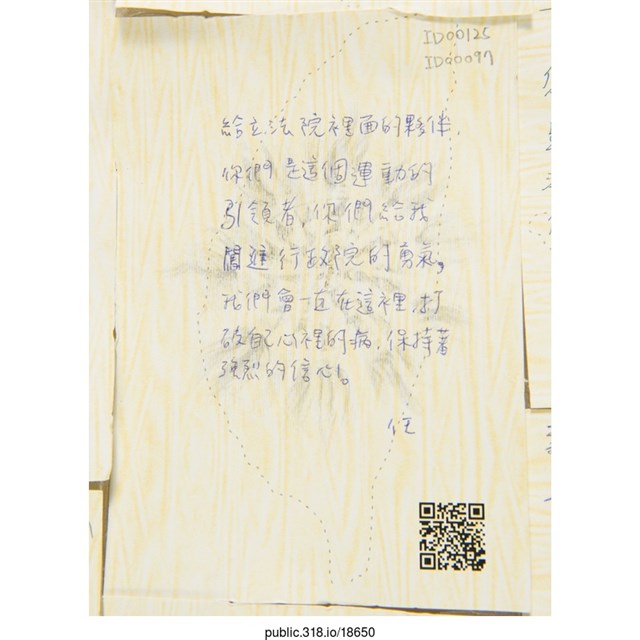 ID00125
ID00097
給立法院裡面的夥伴，
你們是這個運動的
引領者，你們給我
闖進行政院的勇氣，
我們會一直在這裡，打
破自己心裡的病，保持著
強烈的信心。
public.318.io/18650